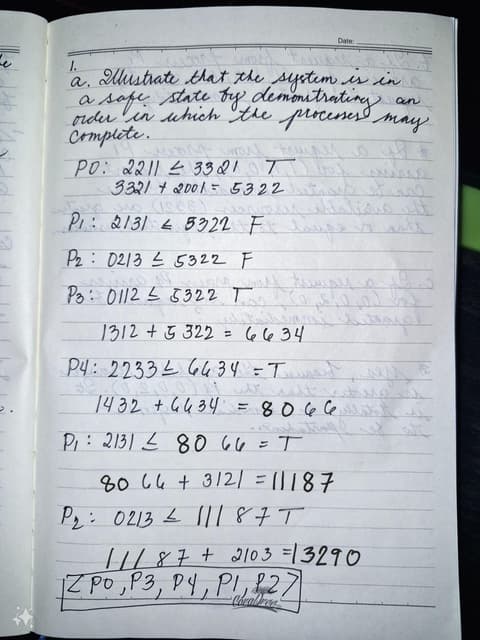 Date:
1.
a. Illustrate that the system is in
a safe state by demonstrating an
order in which the processes may
complete.
P0: 2211 ≤ 3321 T
3321 + 2001 = 5322
P1: 2131 ≤ 5322 F
P2: 0213 ≤ 5322 F
P3: 0112 ≤ 5322 T
1312 + 5322 = 6634
P4: 2233 ≤ 6634 = T
1432 + 6634 = 8066
P1: 2131 ≤ 8066 = T
8066 + 3121 = 11187
P2: 0213 ≤ 11187 T
11187 + 2103 = 13290
<P0, P3, P4, P1, P2>